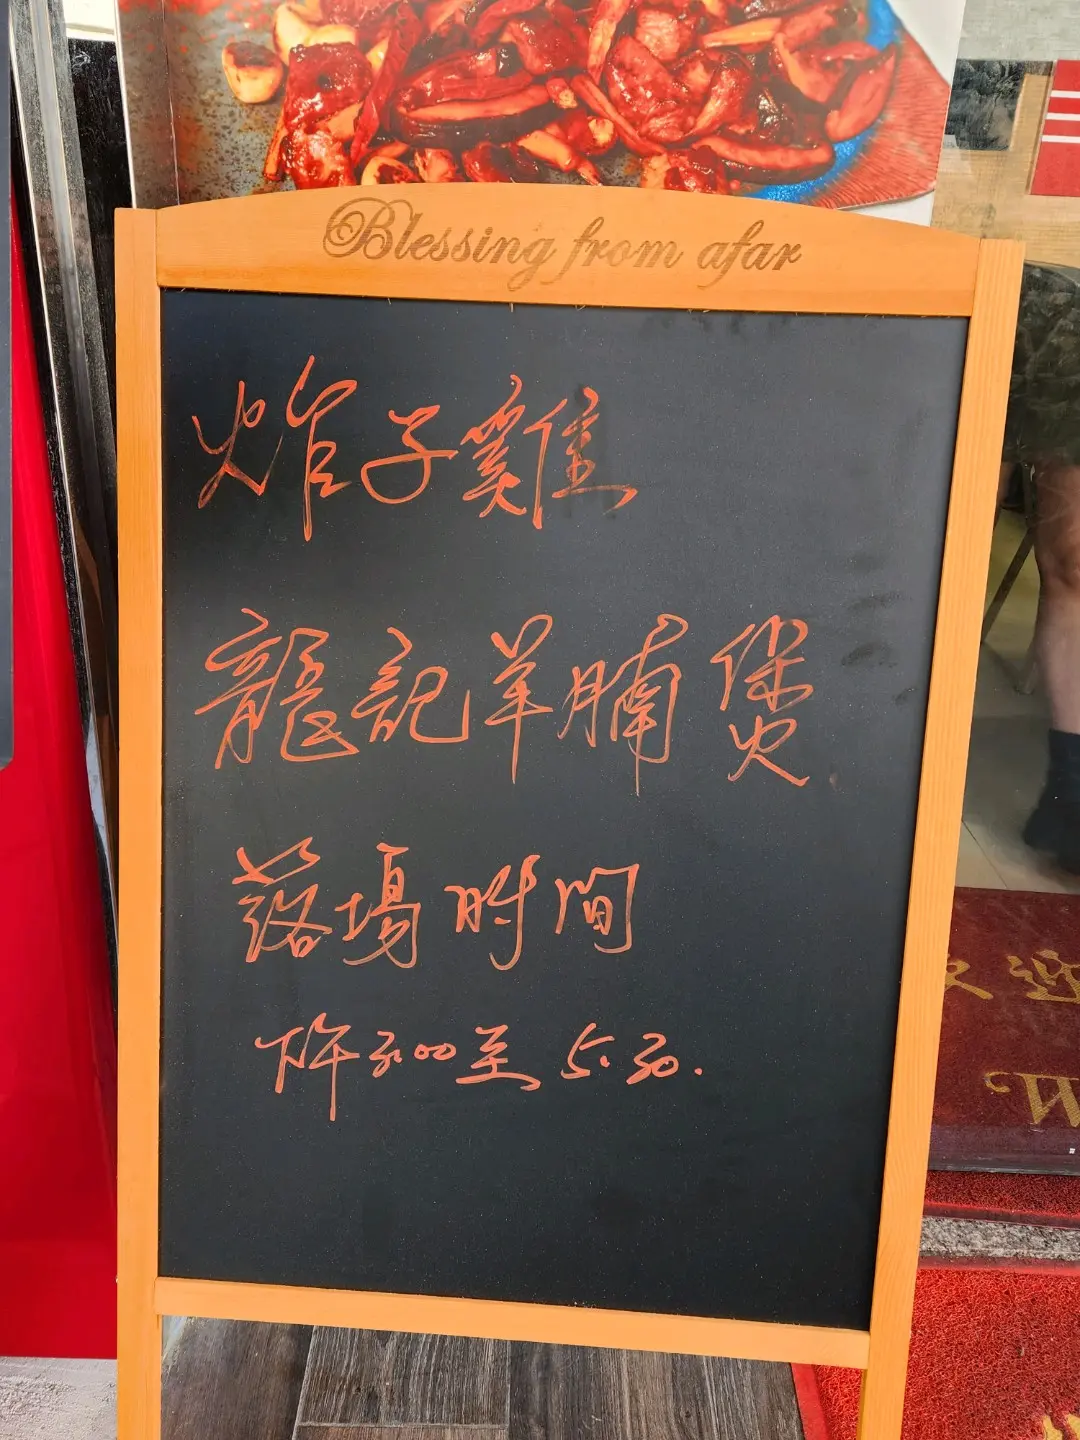 Blessing from afar
炸子雞
龍記羊腩煲
落場時间
下午3:00至5:30.
迎
W